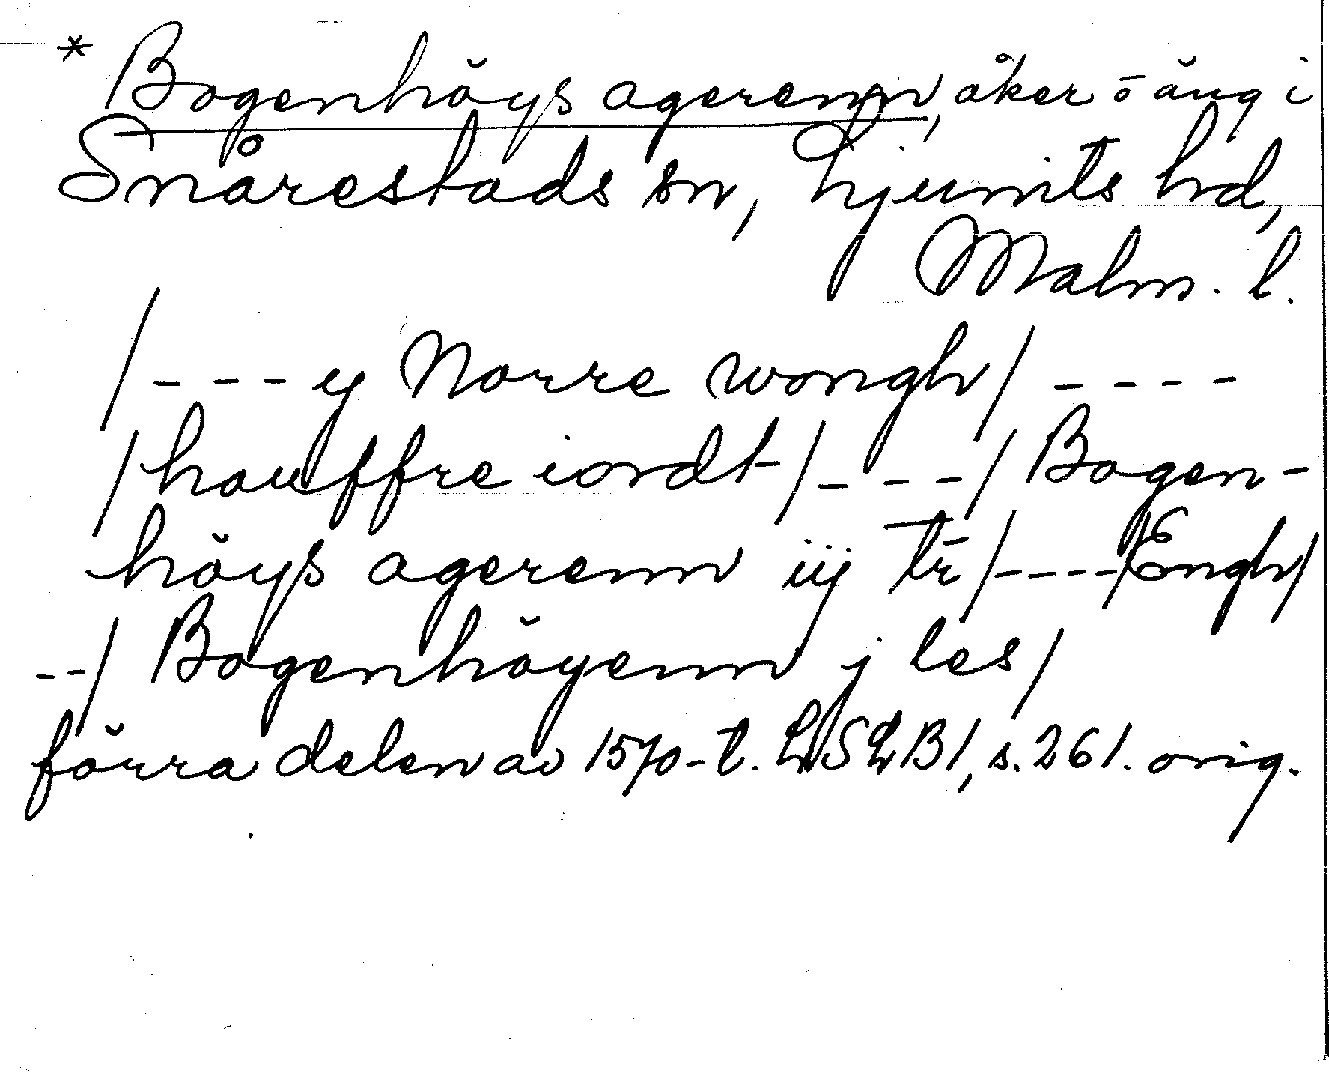 * Bogenhöys agerenn, åker o äng i
Snårestads sn, Ljunits hd,
Malm. l.
/ - - - y Norre wongh/ - - - -
/houffre iordt/ - - - / Bogen-
höys agerenn iij tr̄ / - - - - /Engh/
- - / Bogenhöyenn j les/
förra delen av 1570-t. LSLB1, s. 261. orig.